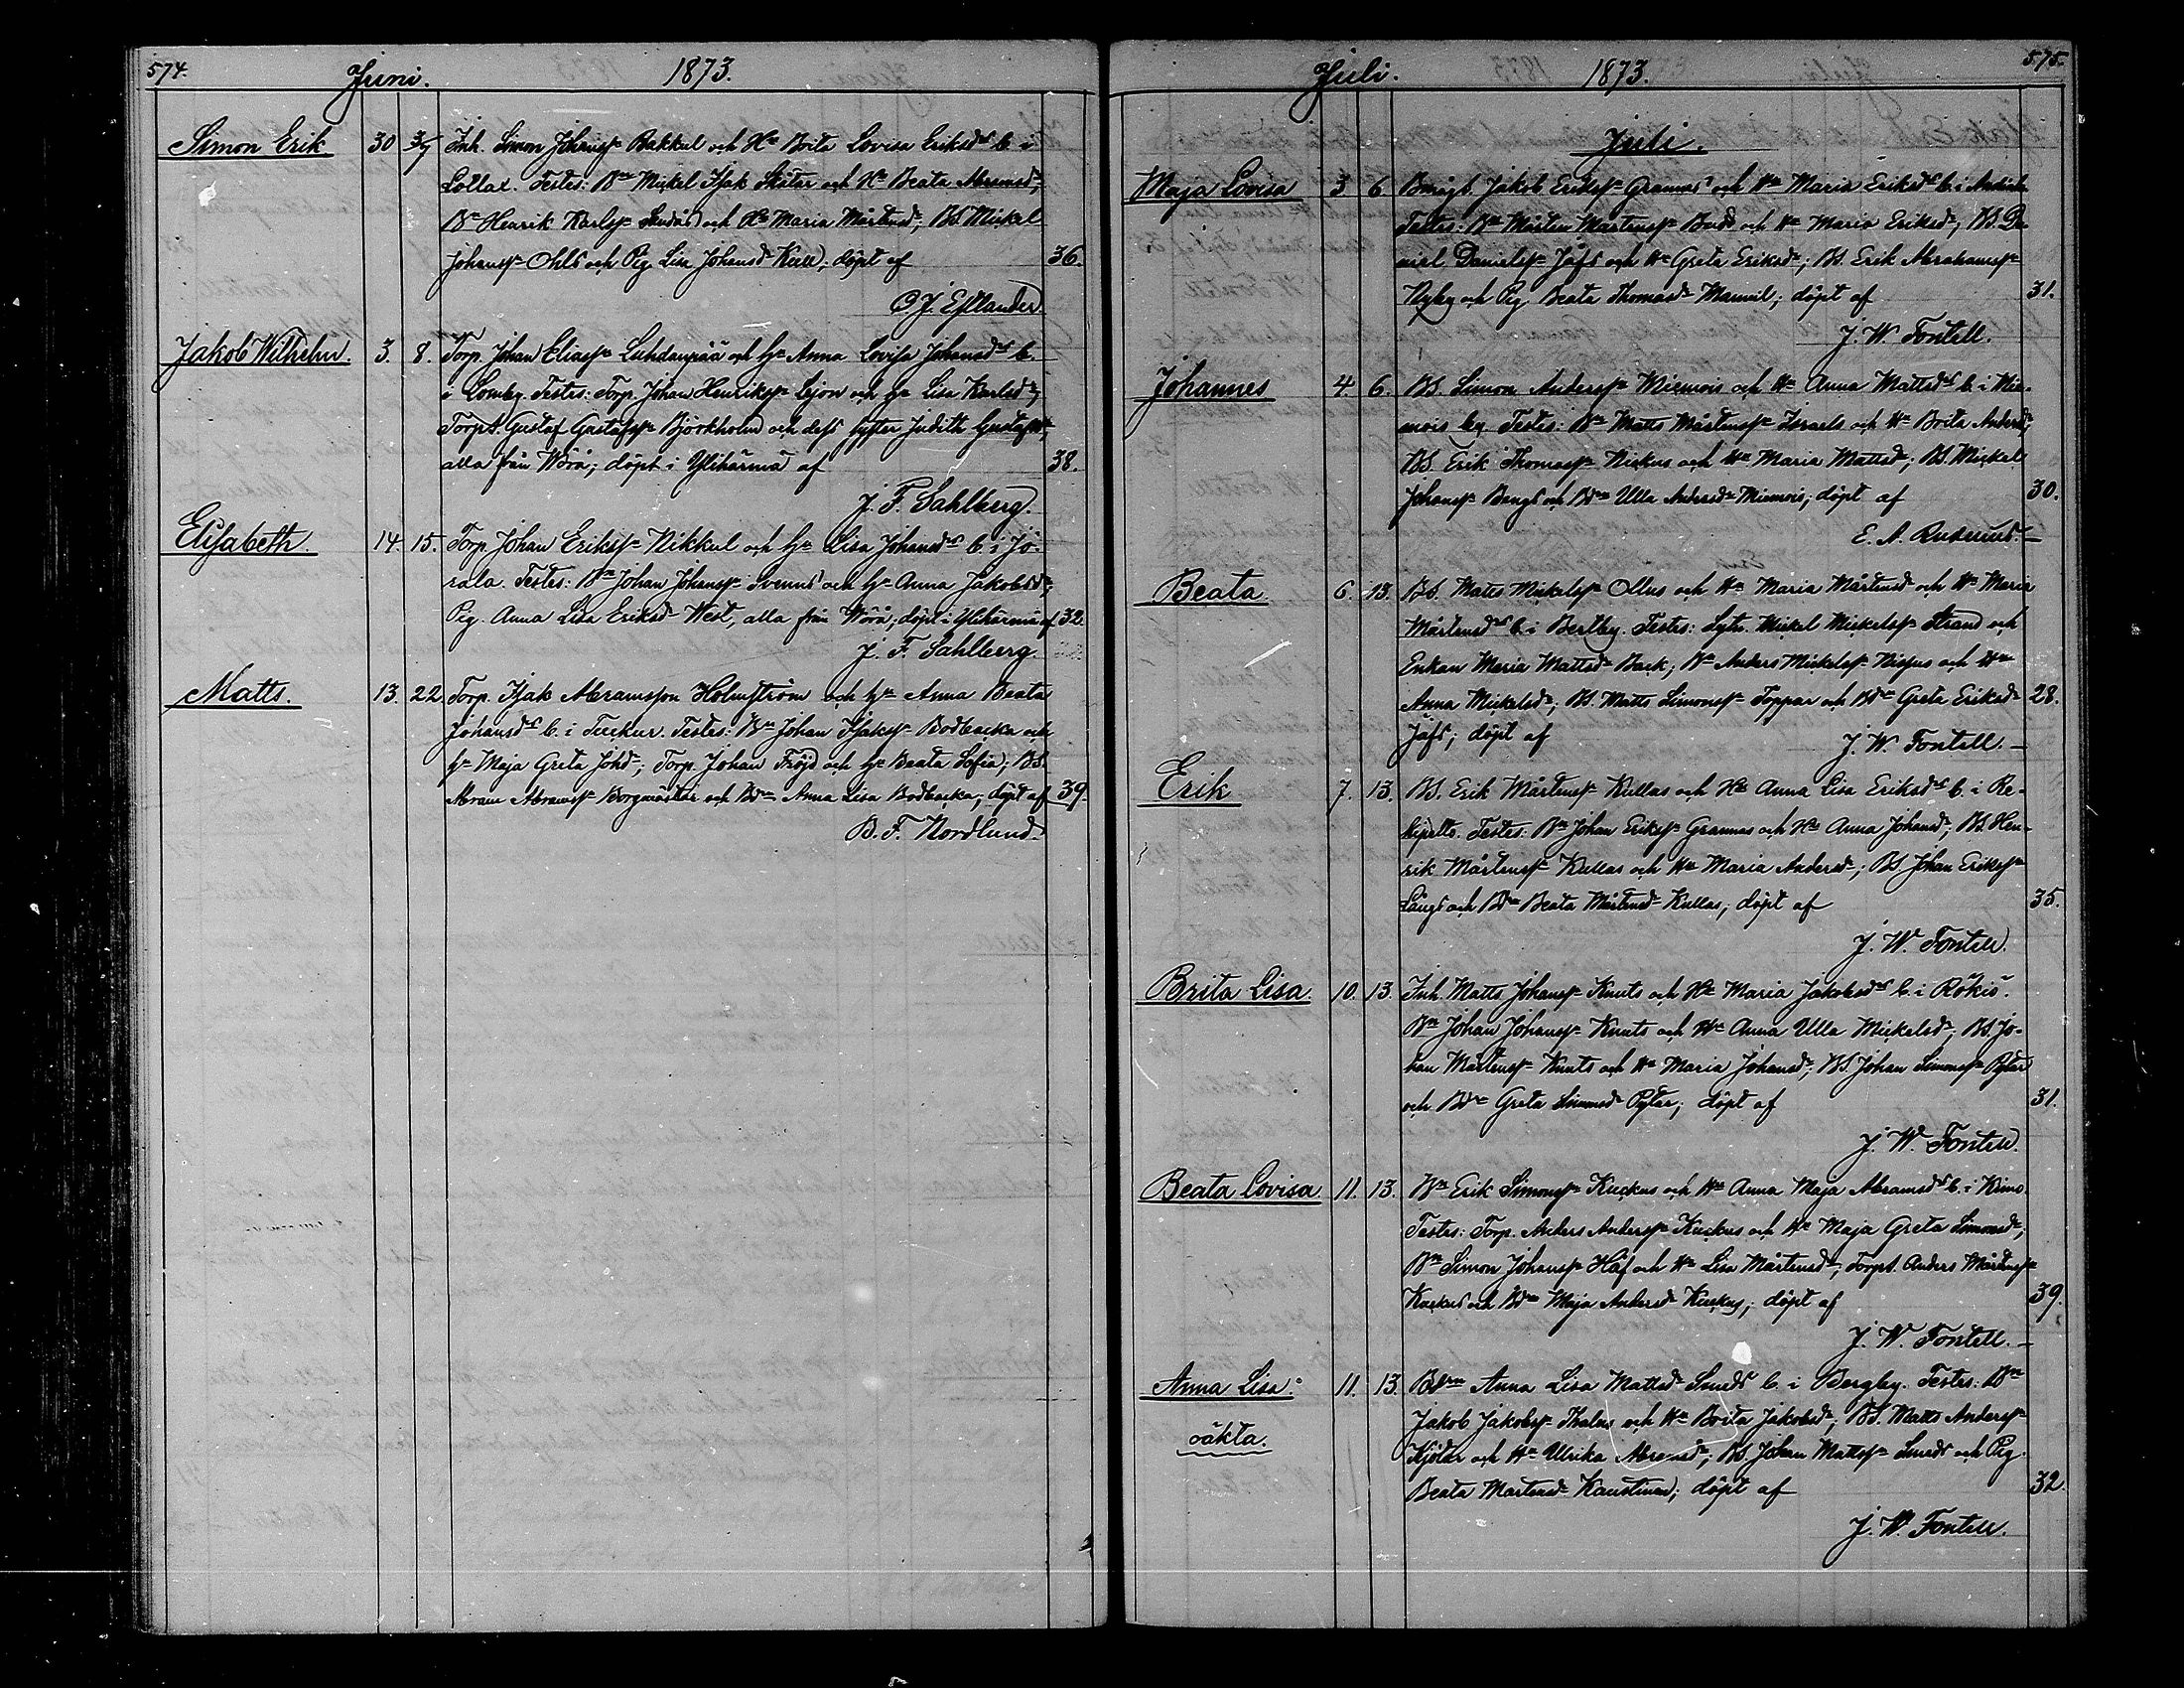 574.
Juni.
1873.
Simon Erik 30 3/7 Inh. Simon Johanss= Bakkul och Hu Brita Lovisa Eriksdr b. i
Lollax. Testes: Bn Mickel Isak Skätar och Hu Beata Abramsdr;
Bn Henrik Karlss= och Hu Maria Mårtensdr; BS. Mickel
Johanss= Ohls och Pig. Lisa Johansdr; döpt af 36.
O. J. Estlander.
Jakob Wilhelm. 3. 8. Torp. Johan Eliass= Luhdanpää och hu Anna Lovisa Johansdr b.
i Lomby. Testes: Torp. Johan Henrikss= Lejon och hu Lisa Karlsdr;
Torps. Gustaf Gustafss= Björkholm och dess syster Judith Gustafsdr,
alla från Wörå; döpt i Ylihärmä af 38.
J. F. Sahlberg.
Elisabeth. 14. 15. Torp. Johan Erikss= Nikkul och hu Lisa Johansdr b. i Jö-
rala. Testes: Bn Johan Johanss= Svenns och hu Anna Jakobsdr;
Pig. Anna Lisa Eriksdr West, alla från Wörå; döpt i Ylihärmä af 32.
J. F. Sahlberg.
Matts. 13. 22. Torp. Isak Abramsson Holmström och hu Anna Beata
Johansdr b. i Tuckur. Testes: Bn Johan Isakss= Bodbacka och
hu Maja Greta Johdr; Torp. Johan Fröjd och hu Beata Sofia; BS.
Abram Abramss= Borgmästar och Bdr Anna Lisa Bodbacka; döpt af 39.
B. F. Nordlund.
Juli.
1873.
575.
Juli.
Maja Lovisa 3 6 Jakob Erikss= Grannas och Hu Maria Eriksdr b. i
Testes: Bn Mårten Mårtenss= och Hu Maria Eriksdr; BS. Da-
niel Danielss= Jåfs och Hu Greta Eriksdr; BS. Erik Abrahamss=
Nyby och Pig. Beata Thomasdr; döpt af 31.
J. W. Fontell.
Johannes 4. 6. BS. Simon Anderss= Miemois och Hu Anna Mattsdr b. i Mie-
mois by. Testes: Bn Matts Mårtenss= Israels och Hu Brita Andersdr;
BS. Erik Thomass= Nickus och Hu Maria Mattsdr; BS. Mickel
Johanss= Bengs och Bdr Ulla Andersdr Miemois; döpt af 30.
E. A.
Beata 6. 13. BS. Matts Mickelss= Ollus och Hu Maria Mårtensdr och Hu Maria
Mårtensdr b. i Bertby. Testes: Sytn. Mickel Mickelss= Strand och
Enkan Maria Mattsdr Back; Bn Anders Mickelss= och Hu
Anna Mickelsdr; BS. Matts Simonss= Toppar och Bdr Greta Eriksdr 28.
Jåfs; döpt af J. W. Fontell.
Erik 7. 13. BS. Erik Mårtenss= Kullas och Hu Anna Lisa Eriksdr b. i Re-
kipelto. Testes: Bn Johan Erikss= Grannas och Hu Anna Johansdr; BS. Hen-
rik Mårtenss= Kullas och Hu Maria Andersdr; BS. Johan Erikss=
Långs och Bdr Beata Mårtensdr Kullas; döpt af 35.
J. W. Fontell.
Brita Lisa. 10. 13. Inh. Matts Johanss= Knuts och Hu Maria Jakobsdr b. i Rökiö.
Bn Johan Johanss= Knuts och Hu Anna Ulla Mickelsdr; BS. Jo-
han Mårtenss= Knuts och Hu Maria Johansdr; BS. Johan Simonss= Pytar
och Bdr Greta Simonsdr Pytar; döpt af 31.
J. W. Fontell.
Beata Lovisa. 11. 13. Bn Erik Simonss= Kuckus och Hu Anna Maja Abramsdr b. i Kimo.
Testes: Torp. Anders Anderss= Kuckus och Hu Maja Greta Simonsdr;
Bn Simon Johanss= Håf och Hu Lisa Mårtensdr; Torps. Anders Mårtenss=
Kuckus och Bdr Maja Andersdr Kuckus; döpt af 39.
J. W. Fontell.
Anna Lisa. 11. 13. Bdrn Anna Lisa Mattsdr Smeds b. i Bergby. Testes: Bn
oäkta. Jakob Jakobss= Thalus och Hu Brita Jakobsdr; BS. Matts Anderss=
Kjötar och Hu Ulrika Abramsdr; BS. Johan Mattss= Smeds och Pig.
Beata Mårtensdr; döpt af 32.
J. W. Fontell.